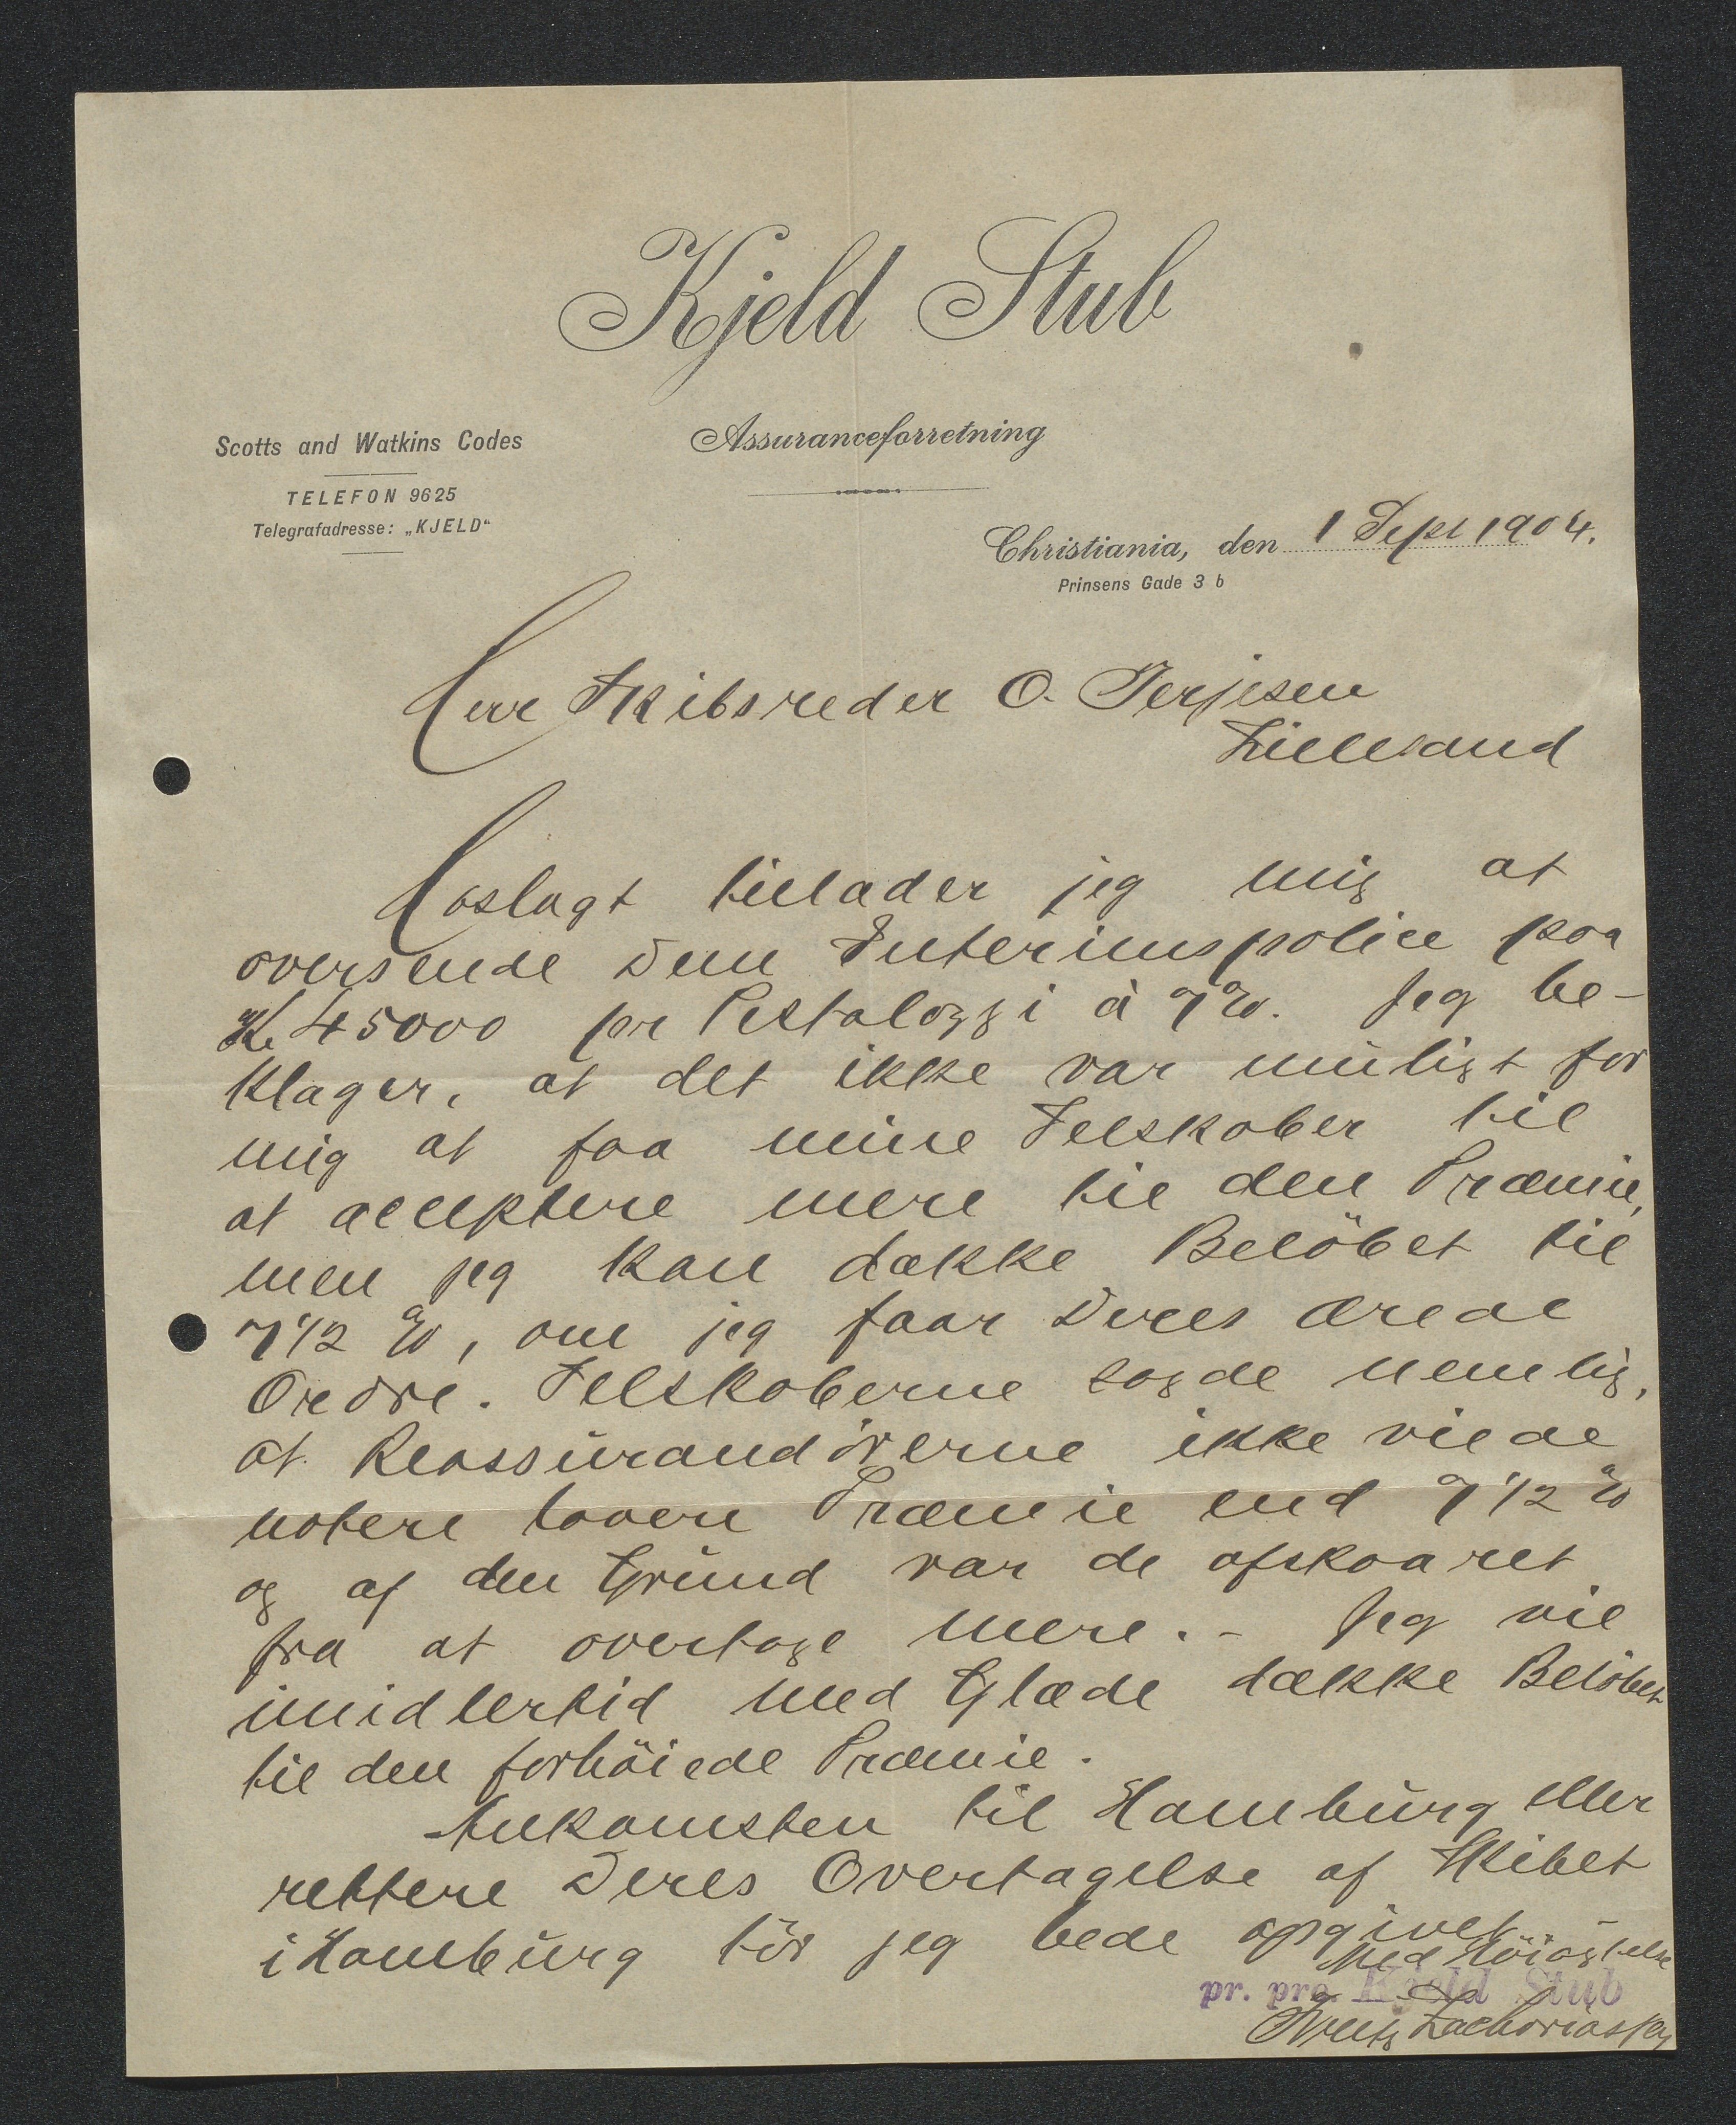 Kjeld Stub
Assuranceforretning
Scotts and Watkins Codes
TELEFON 9625
Telegrafadresse: „KJELD“
Christiania, den 1 Sept 1904.
Prinsens Gade 3 b
Herr Skibsreder O. Terjesen
Lillesand
Hoslagt tillader jeg mig at
oversende Dem Interimspolice paa
Kr. 45000 pr Pestalozzi à 7%. Jeg be-
klager, at det ikke var muligt for
mig at faa mine Selskaber til
at acceptere mere til den Præmie,
men jeg kan dække Belöbet til
7 1/2 %, om jeg faar Deres ærede
Ordre. Selskaberne sagde nemlig,
at Reassurandörerne ikke vilde
notere lavere Præmie end 7 1/2 %
og af den Grund var de afskaaret
fra at overtage mere. - Jeg vil
imidlertid med Glæde dække Belöbet
til den forhöiede Præmie.
Ankomsten til Hamburg eller
rettere Deres Overtagelse af Skibet
i Hamburg tör jeg bede opgivet. -
Med Höiagtelse
pr. pro. Kjeld Stub